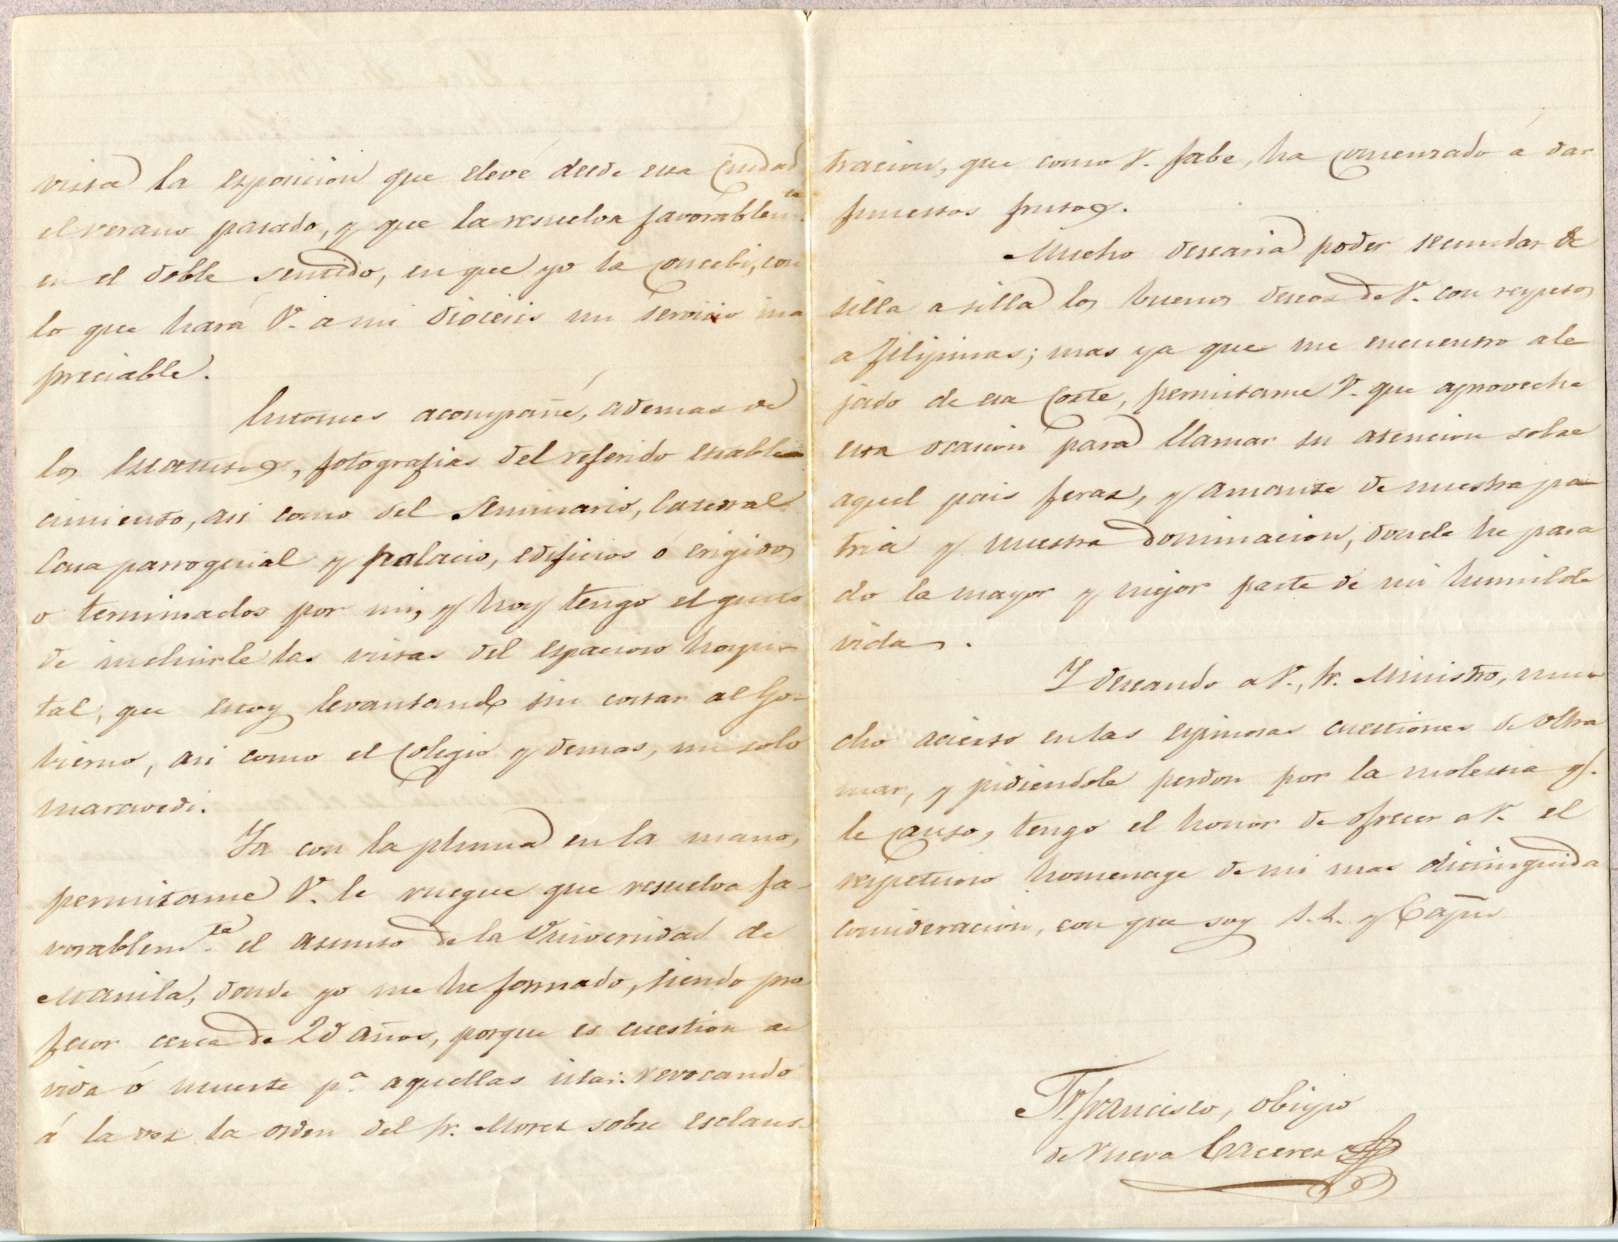 vista la esposicion que elevé desde esta Ciudad
el verano pasado, y que la resuelva favorablem.te
en el doble sentido, en que yo la concebi, con
lo que hará V. a mi diócesis un servicio ina
preciable.
Entonces acompañé, ademas de
los Estatutos, fotografias del referido estable
cimiento, asi como del Seminario, Catedral
Casa parroquial y palacio, edificios ó erigidos
o terminados por mi, y hoy tengo el gusto
de incluirle las vistas del espacioso hospi-
tal, que estoy levantando sin costar al Go-
bierno, asi como el colegio y demas, ni solo
maravedi.
Ya con la pluma en la mano,
permitame V. le ruegue que resuelva fa-
vorablem.te el asunto de la Universidad de
Manila, donde yo me he formado, siendo pro
fesor cerca de 20 años, porque es cuestion de
vida ó muerte p.a aquellas islas: revocando
á la vez la orden del Sr. Moret sobre esclaus-
tracion, que como V. sabe, ha comenzado á dar
funestos frutos.
Mucho desearia poder secundar de
silla a silla los buenos deseos de V. con respecto
a Filipinas; mas ya que me encuentro ale
jado de esa Corte, permitame V. que aproveche
esta ocasion para llamar su atencion sobre
aquel pais feraz, y amante de nuestra pa
tria y nuestra dominacion, donde he pasa
do la mayor y mejor parte de mi humilde
vida.
Y deseando a V., Sr. Ministro, mu-
cho acierto en las espinosas cuestiones de Ultra
mar, y pidiendole perdon por la molestia q.
le causo, tengo el honor de ofrecer a V. el
respetuoso homenage de mi mas distinguida
consideracion, con que soy S. S. y Capn
Fr. Francisco, obispo
de Nueva Caceres